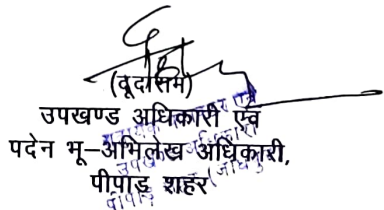 (वूदाराम)
उपखण्ड अधिकारी एवं
पदेन भू–अभिलेख अधिकारी,
पीपाड़ शहर